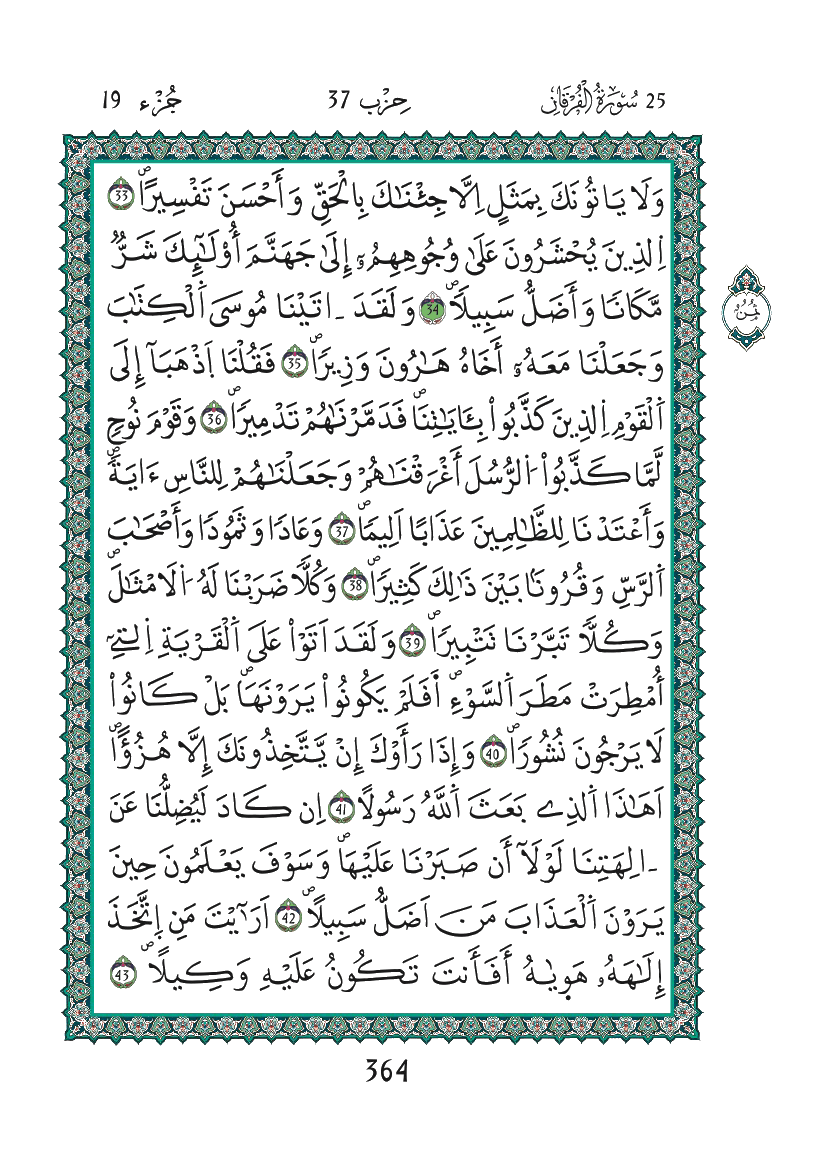 25 سُورَةُ الْفُرْقَانِ حِزْب 37 جُزْء 19
وَلَا يَاتُونَكَ بِمَثَلٍ اِلَّا جِئْنَٰكَ بِالْحَقِّ وَأَحْسَنَ تَفْسِيرًاۖ 33
اِ۬لذِينَ يُحْشَرُونَ عَلَىٰ وُجُوهِهِمُۥٓ إِلَىٰ جَهَنَّمَ أُوْلَٰٓئِكَ شَرّٞ
مَّكَانٗا وَأَضَلُّ سَبِيلٗاۖ 34 وَلَقَدَ اٰتَيْنَا مُوسَى اَ۬لْكِتَٰبَ
وَجَعَلْنَا مَعَهُۥٓ أَخَاهُ هَٰرُونَ وَزِيرٗاۖ 35 فَقُلْنَا اَذْهَبَآ إِلَى
اَ۬لْقَوْمِ اِ۬لذِينَ كَذَّبُواْ بِـَٔايَٰتِنَاۖ فَدَمَّرْنَٰهُمْ تَدْمِيرٗاۖ 36 وَقَوْمَ نُوحٖ
لَّمَّا كَذَّبُواْ اُ۬لرُّسُلَ أَغْرَقْنَٰهُمْ وَجَعَلْنَٰهُمْ لِلنَّاسِ ءَايَةٗۖ
وَأَعْتَدْنَا لِلظَّٰلِمِينَ عَذَابًا اَلِيمٗاۖ 37 وَعَادٗا وَثَمُودٗا وَأَصْحَٰبَ
اَ۬لرَّسِّ وَقُرُونَۢا بَيْنَ ذَٰلِكَ كَثِيرٗاۖ 38 وَكُلّٗا ضَرَبْنَا لَهُ اُ۬لَامْثَٰلَۖ
وَكُلّٗا تَبَّرْنَا تَتْبِيرٗاۖ 39 وَلَقَدَ اَتَوْاْ عَلَى اَ۬لْقَرْيَةِ اِ۬لتِےٓ
أُمْطِرَتْ مَطَرَ اَ۬لسَّوْءِۖ أَفَلَمْ يَكُونُواْ يَرَوْنَهَاۖ بَلْ كَانُواْ
لَا يَرْجُونَ نُشُورٗاۖ 40 وَإِذَا رَأَوْكَ إِنْ يَّتَّخِذُونَكَ إِلَّا هُزُؤًاۖ
اَهَٰذَا اَ۬لذِے بَعَثَ اَ۬للَّهُ رَسُولًا 41 اِن كَادَ لَيُضِلُّنَا عَنَ
اٰلِهَتِنَا لَوْلَآ أَن صَبَرْنَا عَلَيْهَاۖ وَسَوْفَ يَعْلَمُونَ حِينَ
يَرَوْنَ اَ۬لْعَذَابَ مَنَ اَضَلُّ سَبِيلًاۖ 42 اَرَٰٓيْتَ مَنِ اِ۪تَّخَذَ
إِلَٰهَهُۥ هَوِيٰهُ أَفَأَنتَ تَكُونُ عَلَيْهِ وَكِيلًاۖ 43
ثُمُن
364